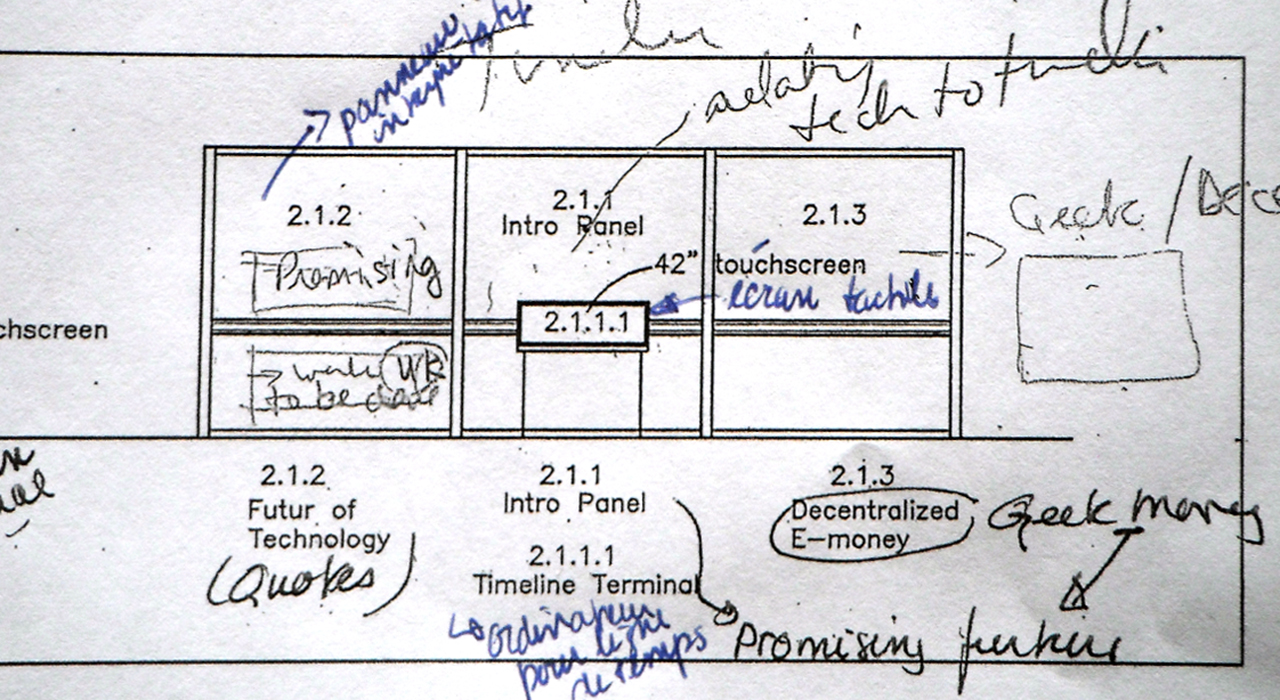 panneau
relating
tech to
2.1.2
2.1.1
Intro Panel
2.1.3
Geek /
Promising
42" touchscreen
écran tactile
2.1.1.1
chscreen
WK
to be done
2.1.2
Futur of
Technology
(Quotes)
2.1.1
Intro Panel
2.1.1.1
Timeline Terminal
ordinateur
pour ligne
de temps
2.1.3
Decentralized
E-money
Geek money
Promising future